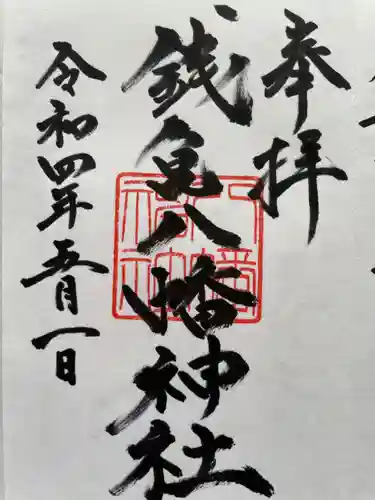 奉拝
銭亀八幡神社
令和四年五月一日